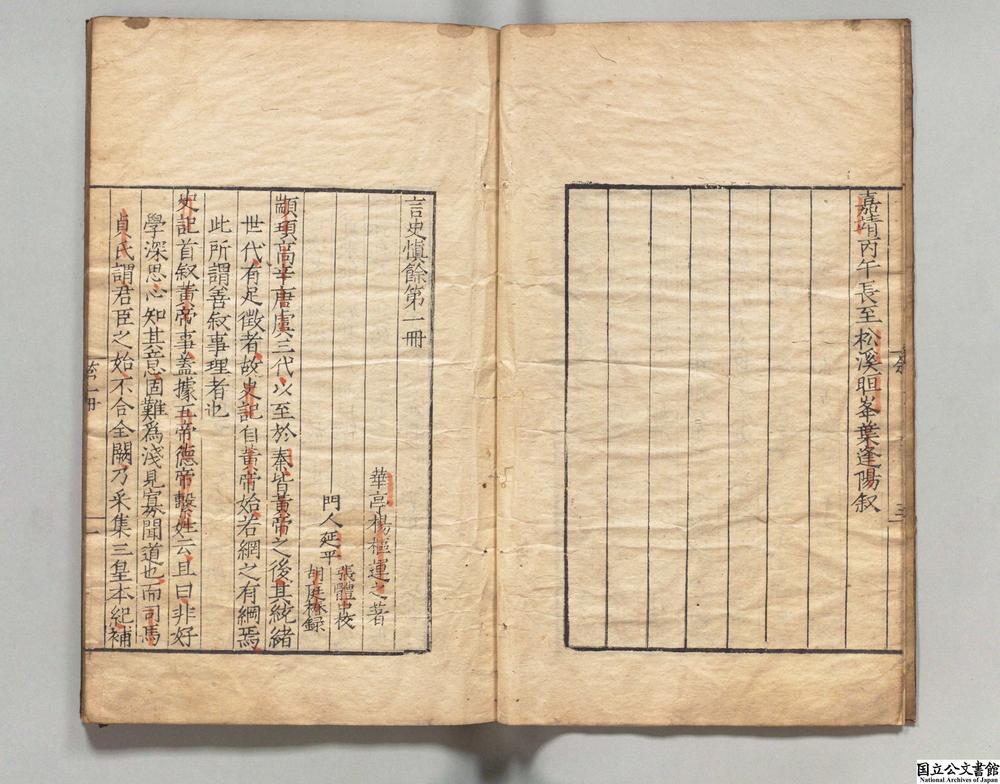 嘉靖丙午長至松溪䀚峯葉逢陽叙
言史慎餘第一冊
華亭楊樞運之著
門人延平
張體中校
胡庭秝録
顓頊高辛唐虞三代以至於秦皆黄帝之後其統緒
世代有足徴者故史記自黄帝始若網之有綱焉
此所謂善叙事理者也
史記首叙黄帝事蓋據五帝德帝繫姓云且曰非好
學深思心知其意固難為淺見寡聞道也而司馬
貞氏謂君臣之始不合全闕乃采集三皇本紀補
国立公文書館
National Archives of Japan